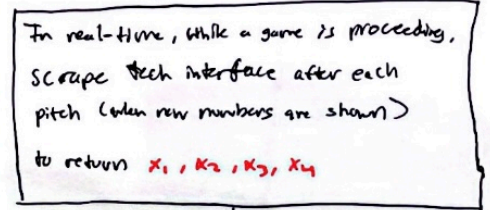 In real-time, while a game is proceeding,
scrape tech interface after each
pitch (when new numbers are shown)
to return x₁, x₂, x₃, x₄